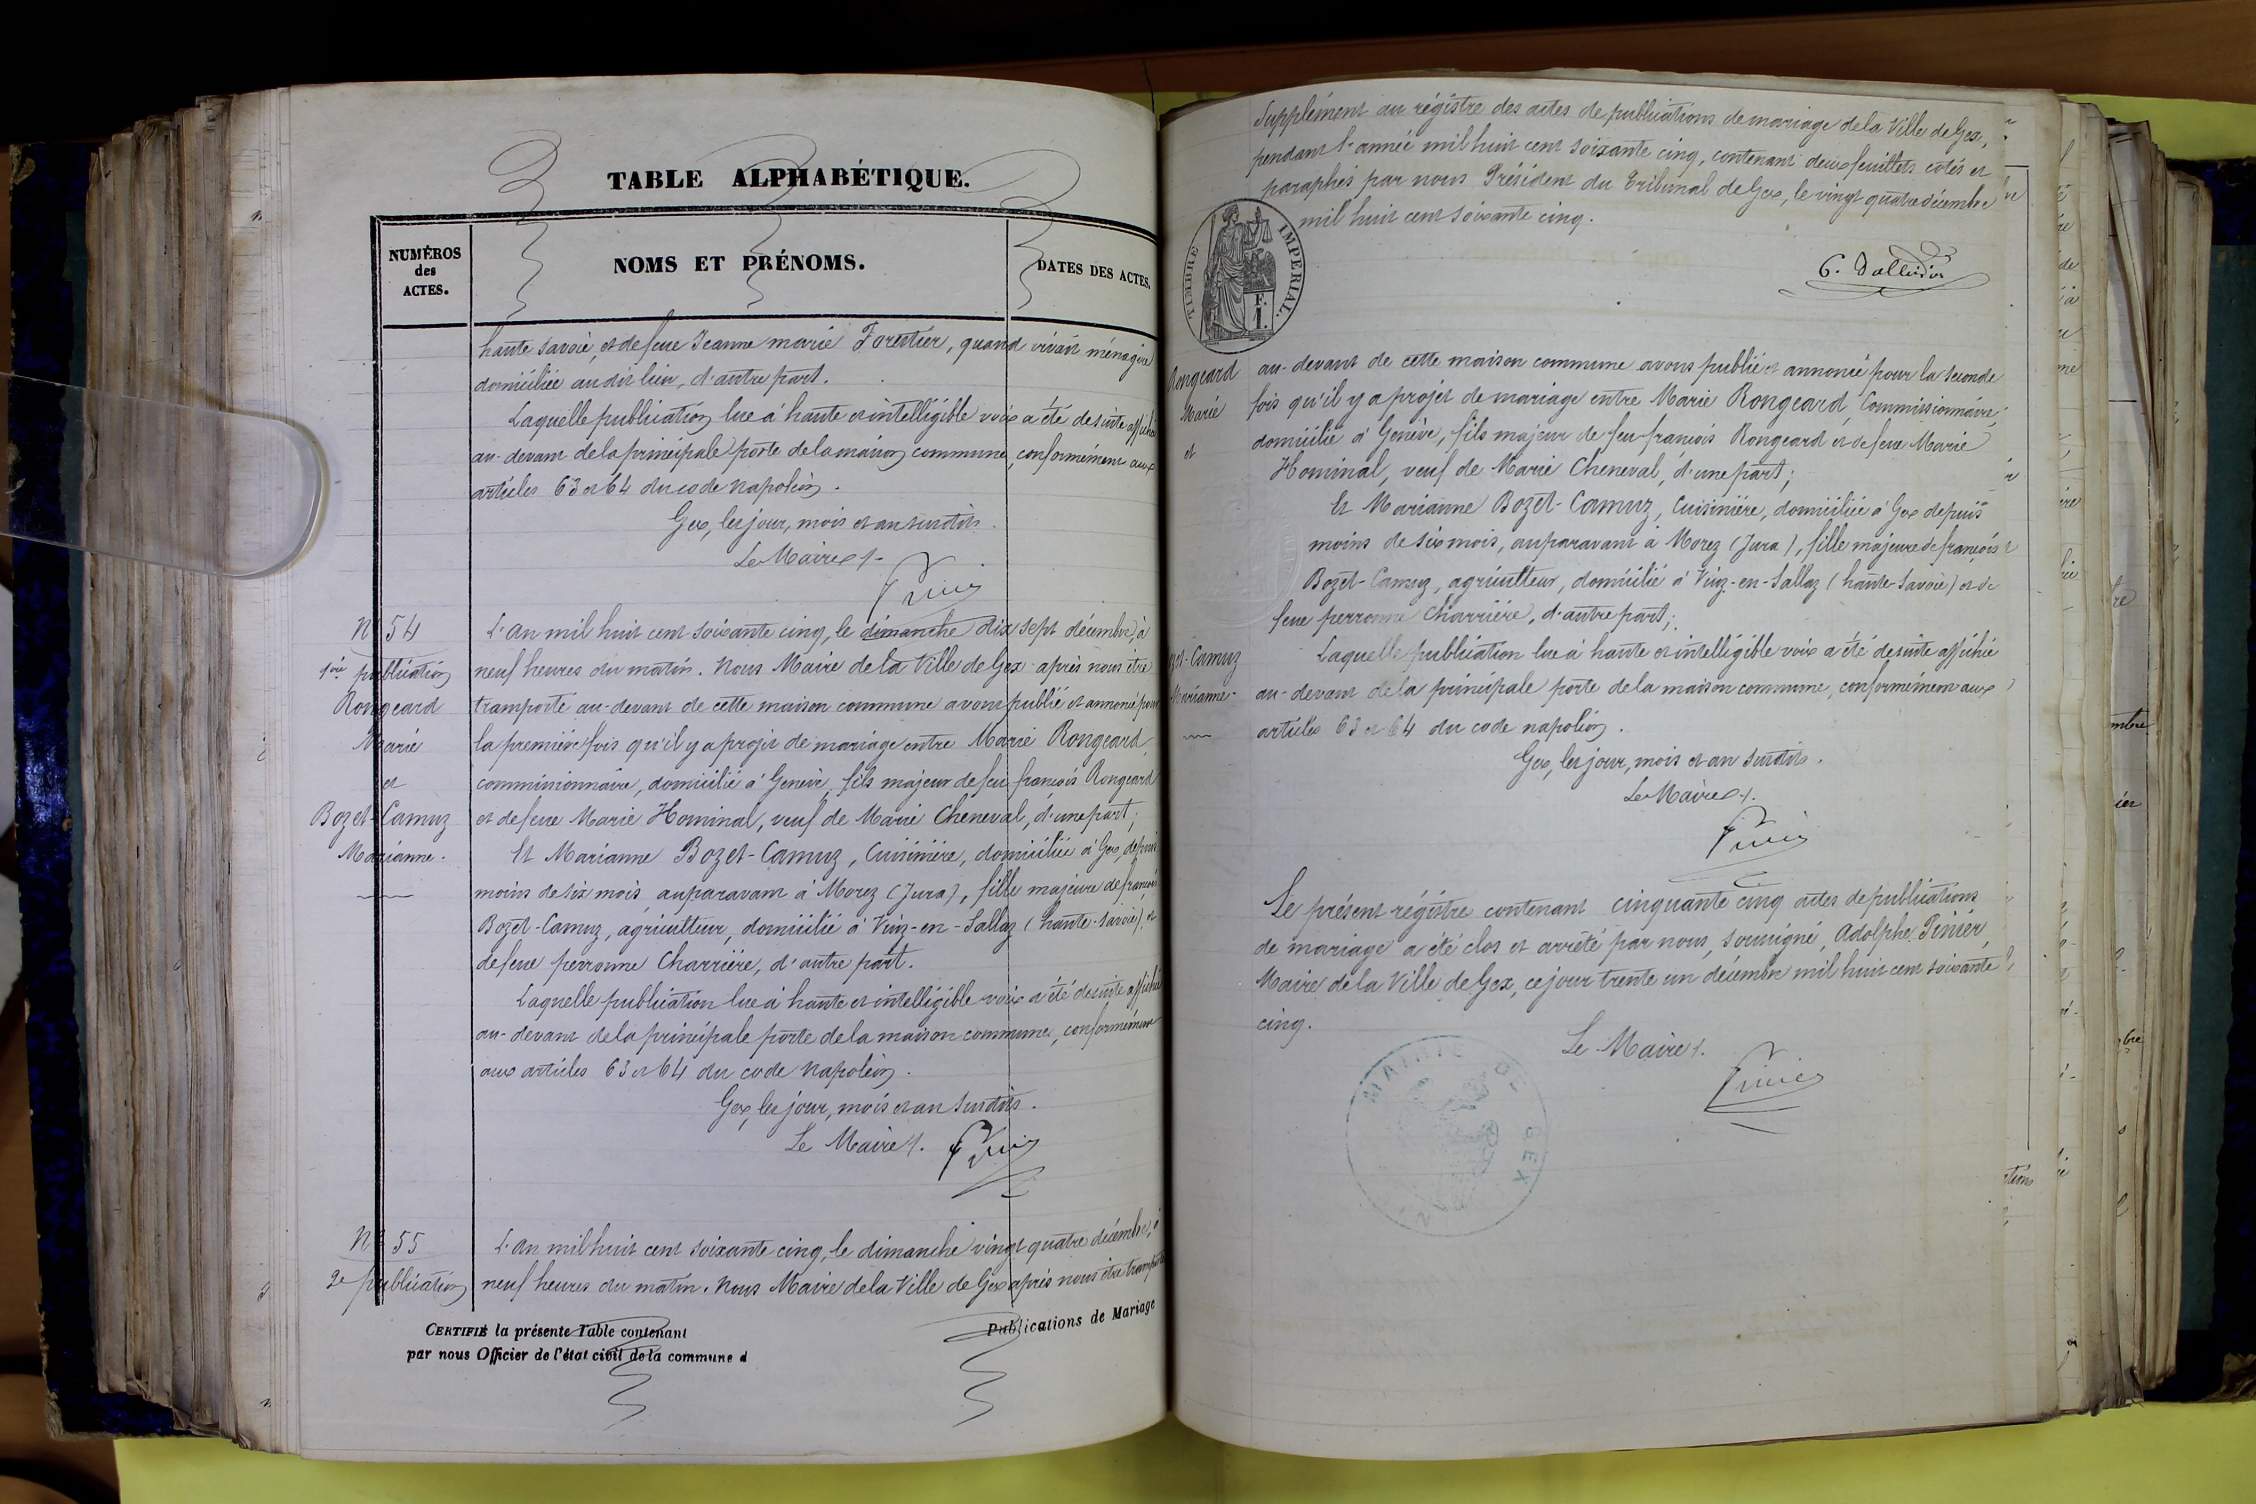 TABLE ALPHABÉTIQUE.
NUMÉROS
des
ACTES.
NOMS ET PRÉNOMS.
DATES DES ACTES.
haute savoie, et de feue Jeanne marie Forestier, quand vivait ménagère
domiciliée au dit lieu, d'autre part.
Laquelle publication lue à haute et intelligible voix a été de suite affichée
au-devant de la principale porte de la maison commune, conformément aux
articles 63 et 64 du code napoléon.
Gex, les jour, mois et an susdits.
Le Maire
Nº 54
1ère publication
Rongeard
Marie
et
Bozet-Camuz
Marianne.
L'an mil huit cent soixante cinq, le dimanche dix sept décembre, à
neuf heures du matin. Nous Maire de la Ville de Gex après nous être
transporté au-devant de cette maison commune avons publié et annoncé pour
la première fois qu'il y a projet de mariage entre Marie Rongeard,
commissionnaire, domicilié à Genève, fils majeur de feu françois Rongeard
et de feue Marie Hominal, veuf de Marie Cheneval, d'une part;
Et Marianne Bozet-Camuz, Cuisinière, domiciliée à Gex, depuis
moins de six mois, auparavant à Morez (Jura), fille majeure de françois
Bozet-Camuz, agriculteur, domicilié à Viuz-en-Sallaz (haute-savoie) et
de feue perronne Charrière, d'autre part.
Laquelle publication lue à haute et intelligible voix a été de suite affichée
au-devant de la principale porte de la maison commune, conformément
aux articles 63 et 64 du code napoléon.
Gex, les jour, mois et an susdits.
Le Maire
Nº 55
2e publication
L'an mil huit cent soixante cinq, le dimanche vingt quatre décembre, à
neuf heures du matin. Nous Maire de la Ville de Gex après nous être transporté
CERTIFIÉ la présente Table contenant
Publications de Mariage
par nous Officier de l'état civil de la commune d
Supplément au régistre des actes de publications de mariage de la Ville de Gex,
pendant l'année mil huit cent soixante cinq, contenant deux feuillets cotés et
paraphés par nous Président du Tribunal de Gex, le vingt quatre décembre
mil huit cent soixante cinq.
TIMBRE IMPERIAL.
F.
I.
Rongeard
Marie
et
Camuz
Marianne
au-devant de cette maison commune avons publié et annoncé pour la seconde
fois qu'il y a projet de mariage entre Marie Rongeard, Commissionnaire,
domicilié à Genève, fils majeur de feu françois Rongeard et de feue Marie
Hominal, veuf de Marie Cheneval, d'une part;
Et Marianne Bozet-Camuz, Cuisinière, domiciliée à Gex depuis
moins de six mois, auparavant à Morez (Jura), fille majeure de françois
Bozet-Camuz, agriculteur, domicilié à Viuz-en-Sallaz (haute-Savoie) et de
feue perronne Charrière, d'autre part;
Laquelle publication lue à haute et intelligible voix a été de suite affichée
au-devant de la principale porte de la maison commune, conformément aux
articles 63 et 64 du code napoléon.
Gex, les jour, mois et an susdits.
Le Maire
Le présent régistre contenant cinquante cinq actes de publications
de mariage a été clos et arrêté par nous, soussigné, Adolphe Pinier,
Maire de la Ville de Gex, ce jour trente un décembre mil huit cent soixante
cinq.
Le Maire
MAIRIE DE GEX